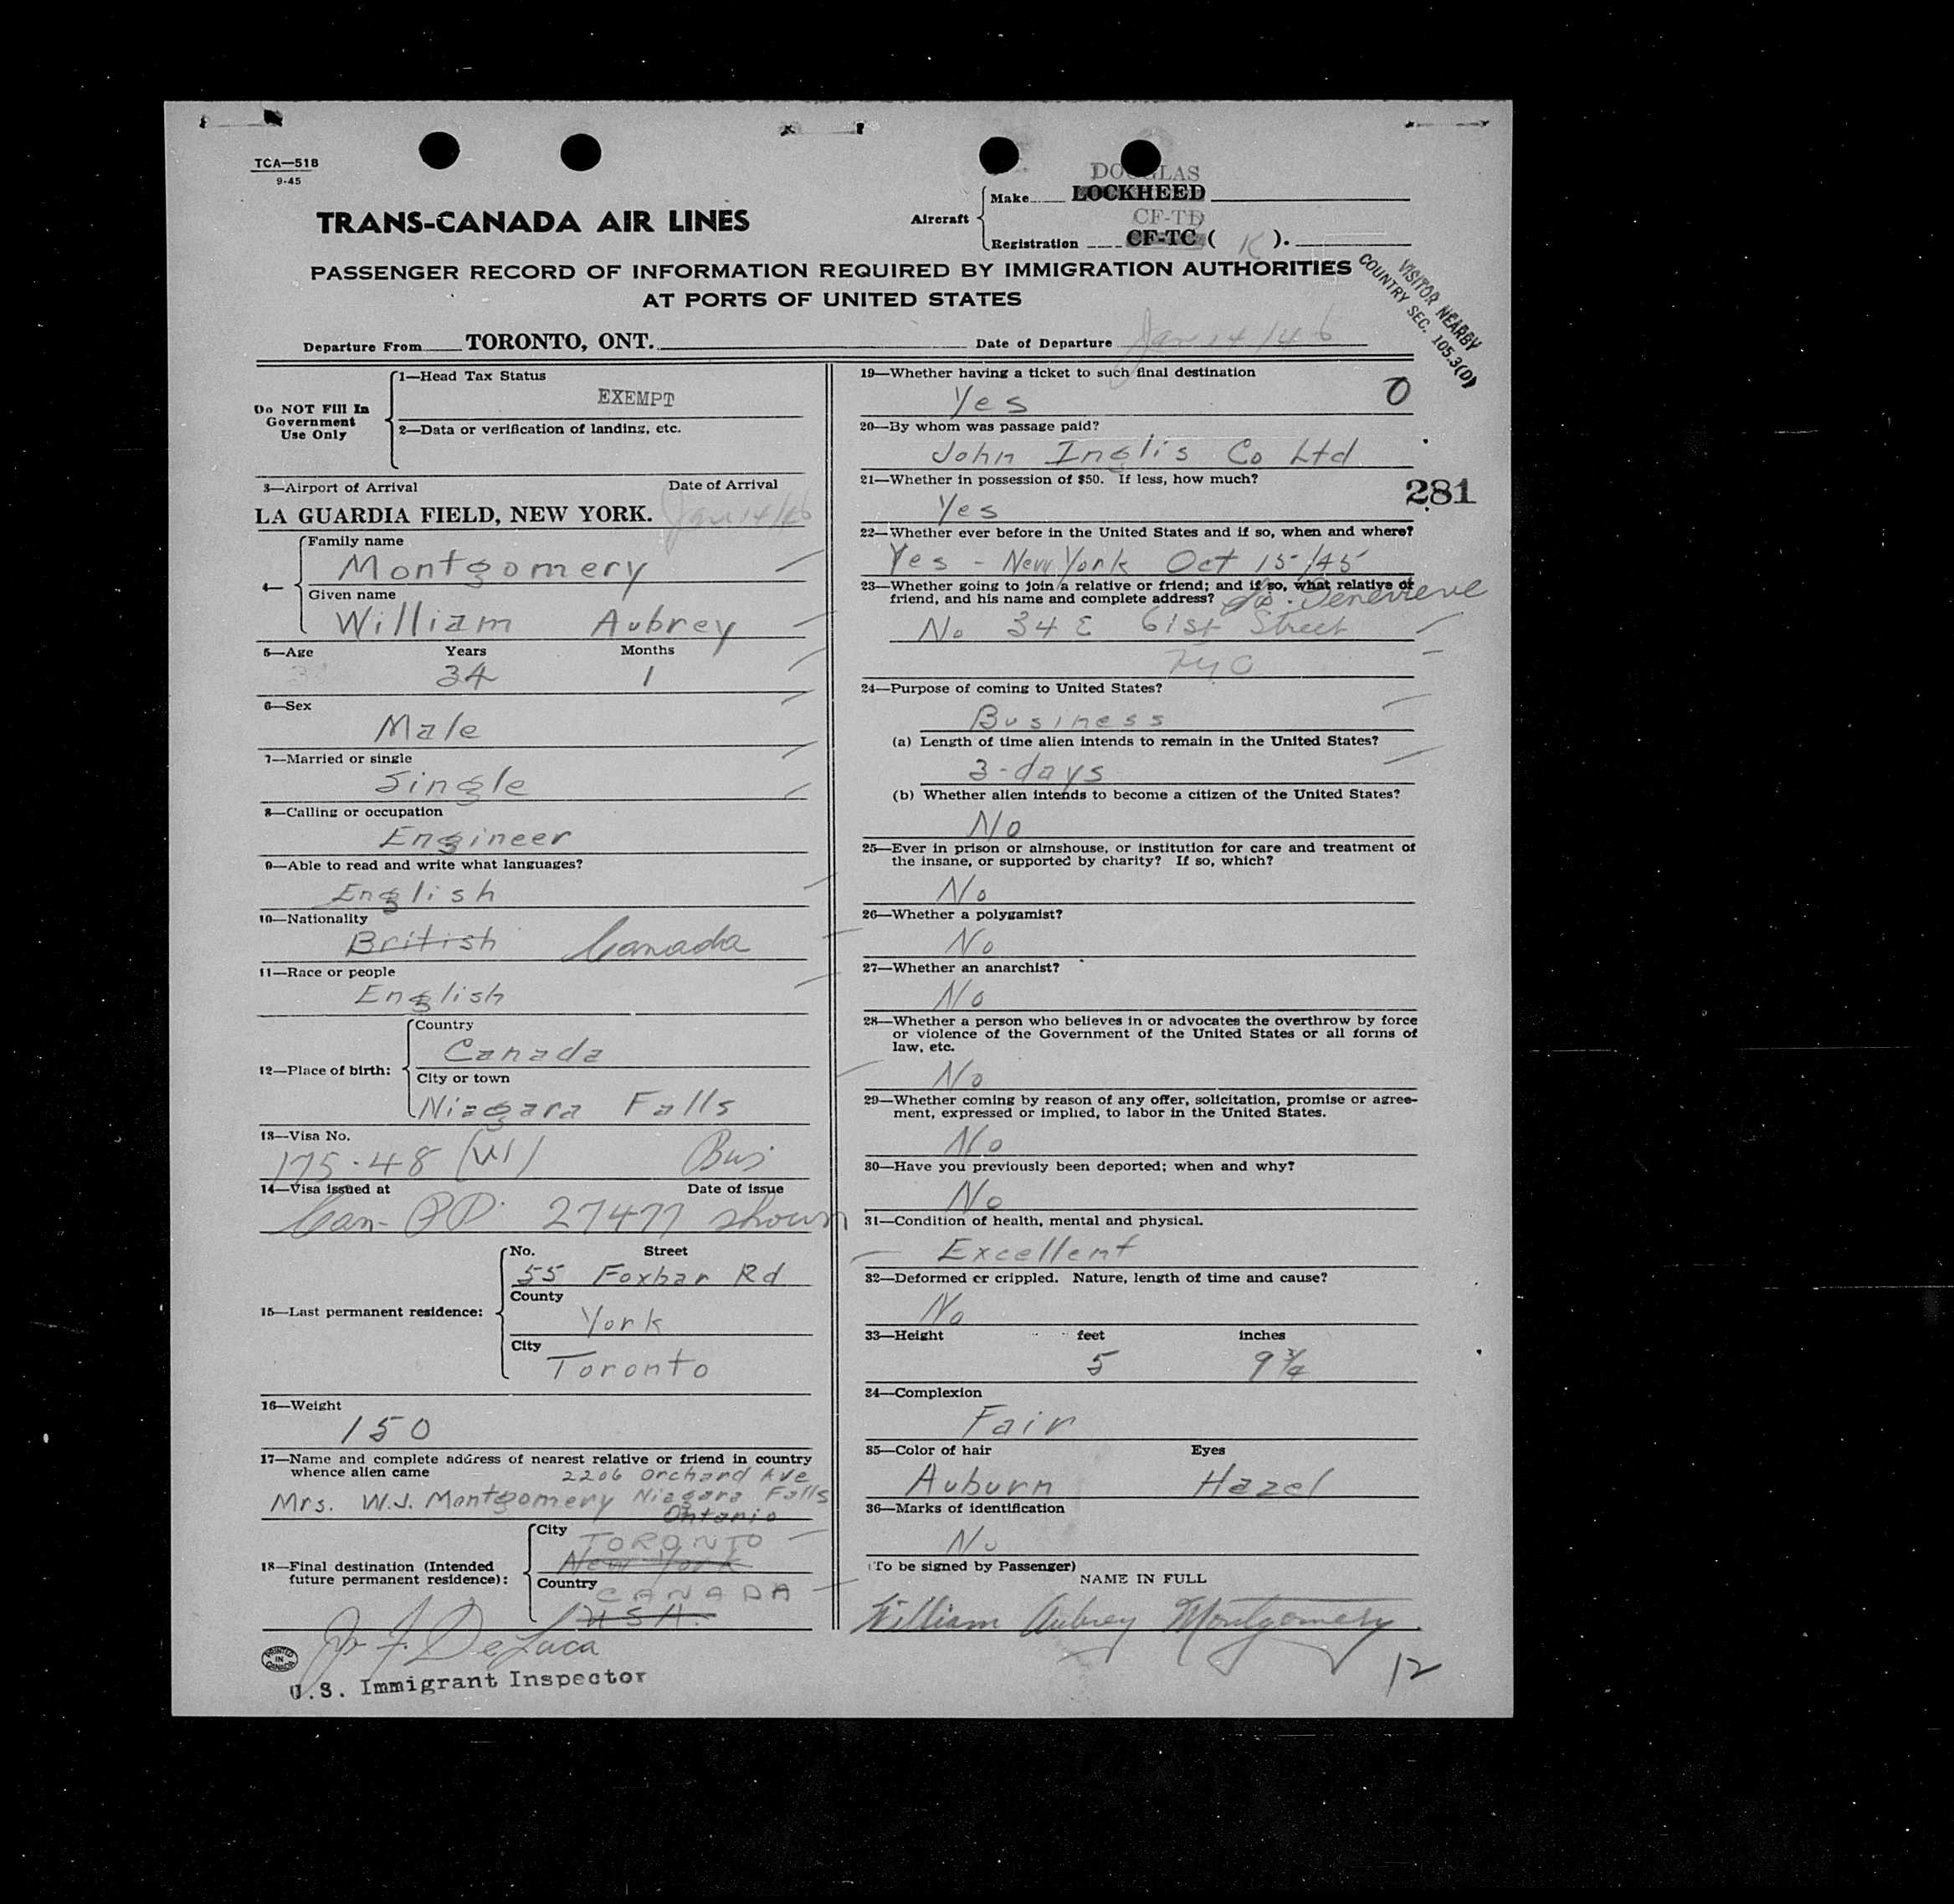 TCA—518
9-45
DOUGLAS
Aircraft
Make LOCKHEED
CF-TD
Registration CF-TC ( K ).
TRANS-CANADA AIR LINES
PASSENGER RECORD OF INFORMATION REQUIRED BY IMMIGRATION AUTHORITIES
AT PORTS OF UNITED STATES
VISITOR NEARBY
COUNTRY SEC. 105.3(D)
Departure From TORONTO, ONT. Date of Departure Jan 14/46
Do NOT Fill In
Government
Use Only
1—Head Tax Status
EXEMPT
2—Data or verification of landing, etc.
3—Airport of Arrival Date of Arrival
LA GUARDIA FIELD, NEW YORK. Jan 14/46
4—
Family name
Montgomery
Given name
William Aubrey
5—Age Years Months
34 1
6—Sex
Male
7—Married or single
Single
8—Calling or occupation
Engineer
9—Able to read and write what languages?
English
10—Nationality
British Canada
11—Race or people
English
12—Place of birth:
Country
Canada
City or town
Niagara Falls
13—Visa No.
175.48 (VI) Bus
14—Visa issued at Date of issue
Can- PP. 27477 shown
15—Last permanent residence:
No. Street
55 Foxbar Rd
County
York
City
Toronto
16—Weight
150
17—Name and complete address of nearest relative or friend in country
whence alien came 2206 Orchard Ave
Mrs. W.J. Montgomery Niagara Falls
Ontario
18—Final destination (Intended
future permanent residence):
City
TORONTO
New York
Country
CANADA
USA.
J. DeLuca
U.S. Immigrant Inspector
PRINTED
IN
CANADA
19—Whether having a ticket to such final destination
Yes 0
20—By whom was passage paid?
John Inglis Co Ltd
21—Whether in possession of $50. If less, how much?
281
Yes
22—Whether ever before in the United States and if so, when and where?
Yes - New York Oct 15/45
23—Whether going to join a relative or friend; and if so, what relative or
friend, and his name and complete address? Genevieve
No 34 E 61st Street
NYC
24—Purpose of coming to United States?
Business
(a) Length of time alien intends to remain in the United States?
3-days
(b) Whether alien intends to become a citizen of the United States?
No
25—Ever in prison or almshouse, or institution for care and treatment of
the insane, or supported by charity? If so, which?
No
26—Whether a polygamist?
No
27—Whether an anarchist?
No
28—Whether a person who believes in or advocates the overthrow by force
or violence of the Government of the United States or all forms of
law, etc.
No
29—Whether coming by reason of any offer, solicitation, promise or agree-
ment, expressed or implied, to labor in the United States.
No
30—Have you previously been deported; when and why?
No
31—Condition of health, mental and physical.
Excellent
32—Deformed or crippled. Nature, length of time and cause?
No
33—Height feet inches
5 9¾
34—Complexion
Fair
35—Color of hair Eyes
Auburn Hazel
36—Marks of identification
No
(To be signed by Passenger)
NAME IN FULL
William Aubrey Montgomery
12